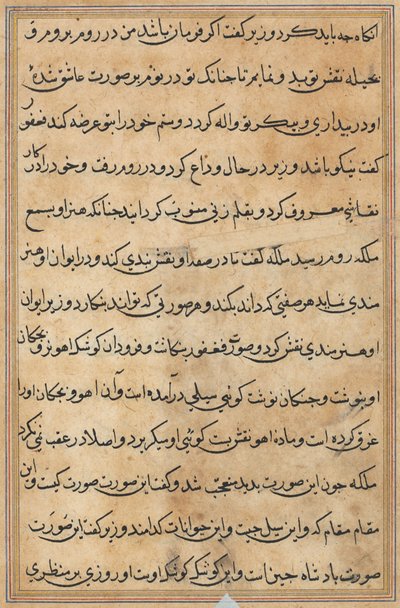 انکاه جه باید کرد وزیر کفت اکر فرمان باشد من در روم بروم و
بحیله نقش تو بدو نمایم تا جنانک تو در نوم بر صورت عاشق شدهٔ
او در بیداری و پیکر تو واله کردد و ستم خود را بتو عرضه کند فغفور
کفت نیکو باشد وزیر در حال وداع کرد و در روم رفت و خود را در کار
نقاشی معروف کرد و بقلم زنی منسوب کردانید جنانکه هنر او بسمع
ملکه روم رسید ملکه کفت تا در صفه او نقش بندی کند و در ایوان او هنر
مندی نماید هر صفتی که داند بکند و هر صورتی که تواند بنکارد وزیر ایوان
او هنرمندی نقش کرد و صورت فغفور بنکاشت و فرود آن کوشک اهو و بجکان
او بنوشت و جنکان نوشت کوئی سیلی درآمده است و آن اهو و بجکان او را
غرق کرده است و ماده اهو نقش بست کوئی او میکریزد و اصلا در عقب نمی نکرد
ملکه جون این صورت بدید متعجب شد و کفت این صورت صورت کیست و این
مقام مقام که و این سیل جیست و این حیوانات کدامند وزیر کفت این صورت
صورت بادشاه جین است و این کوشک کوشک اوست او روزی بر منظری